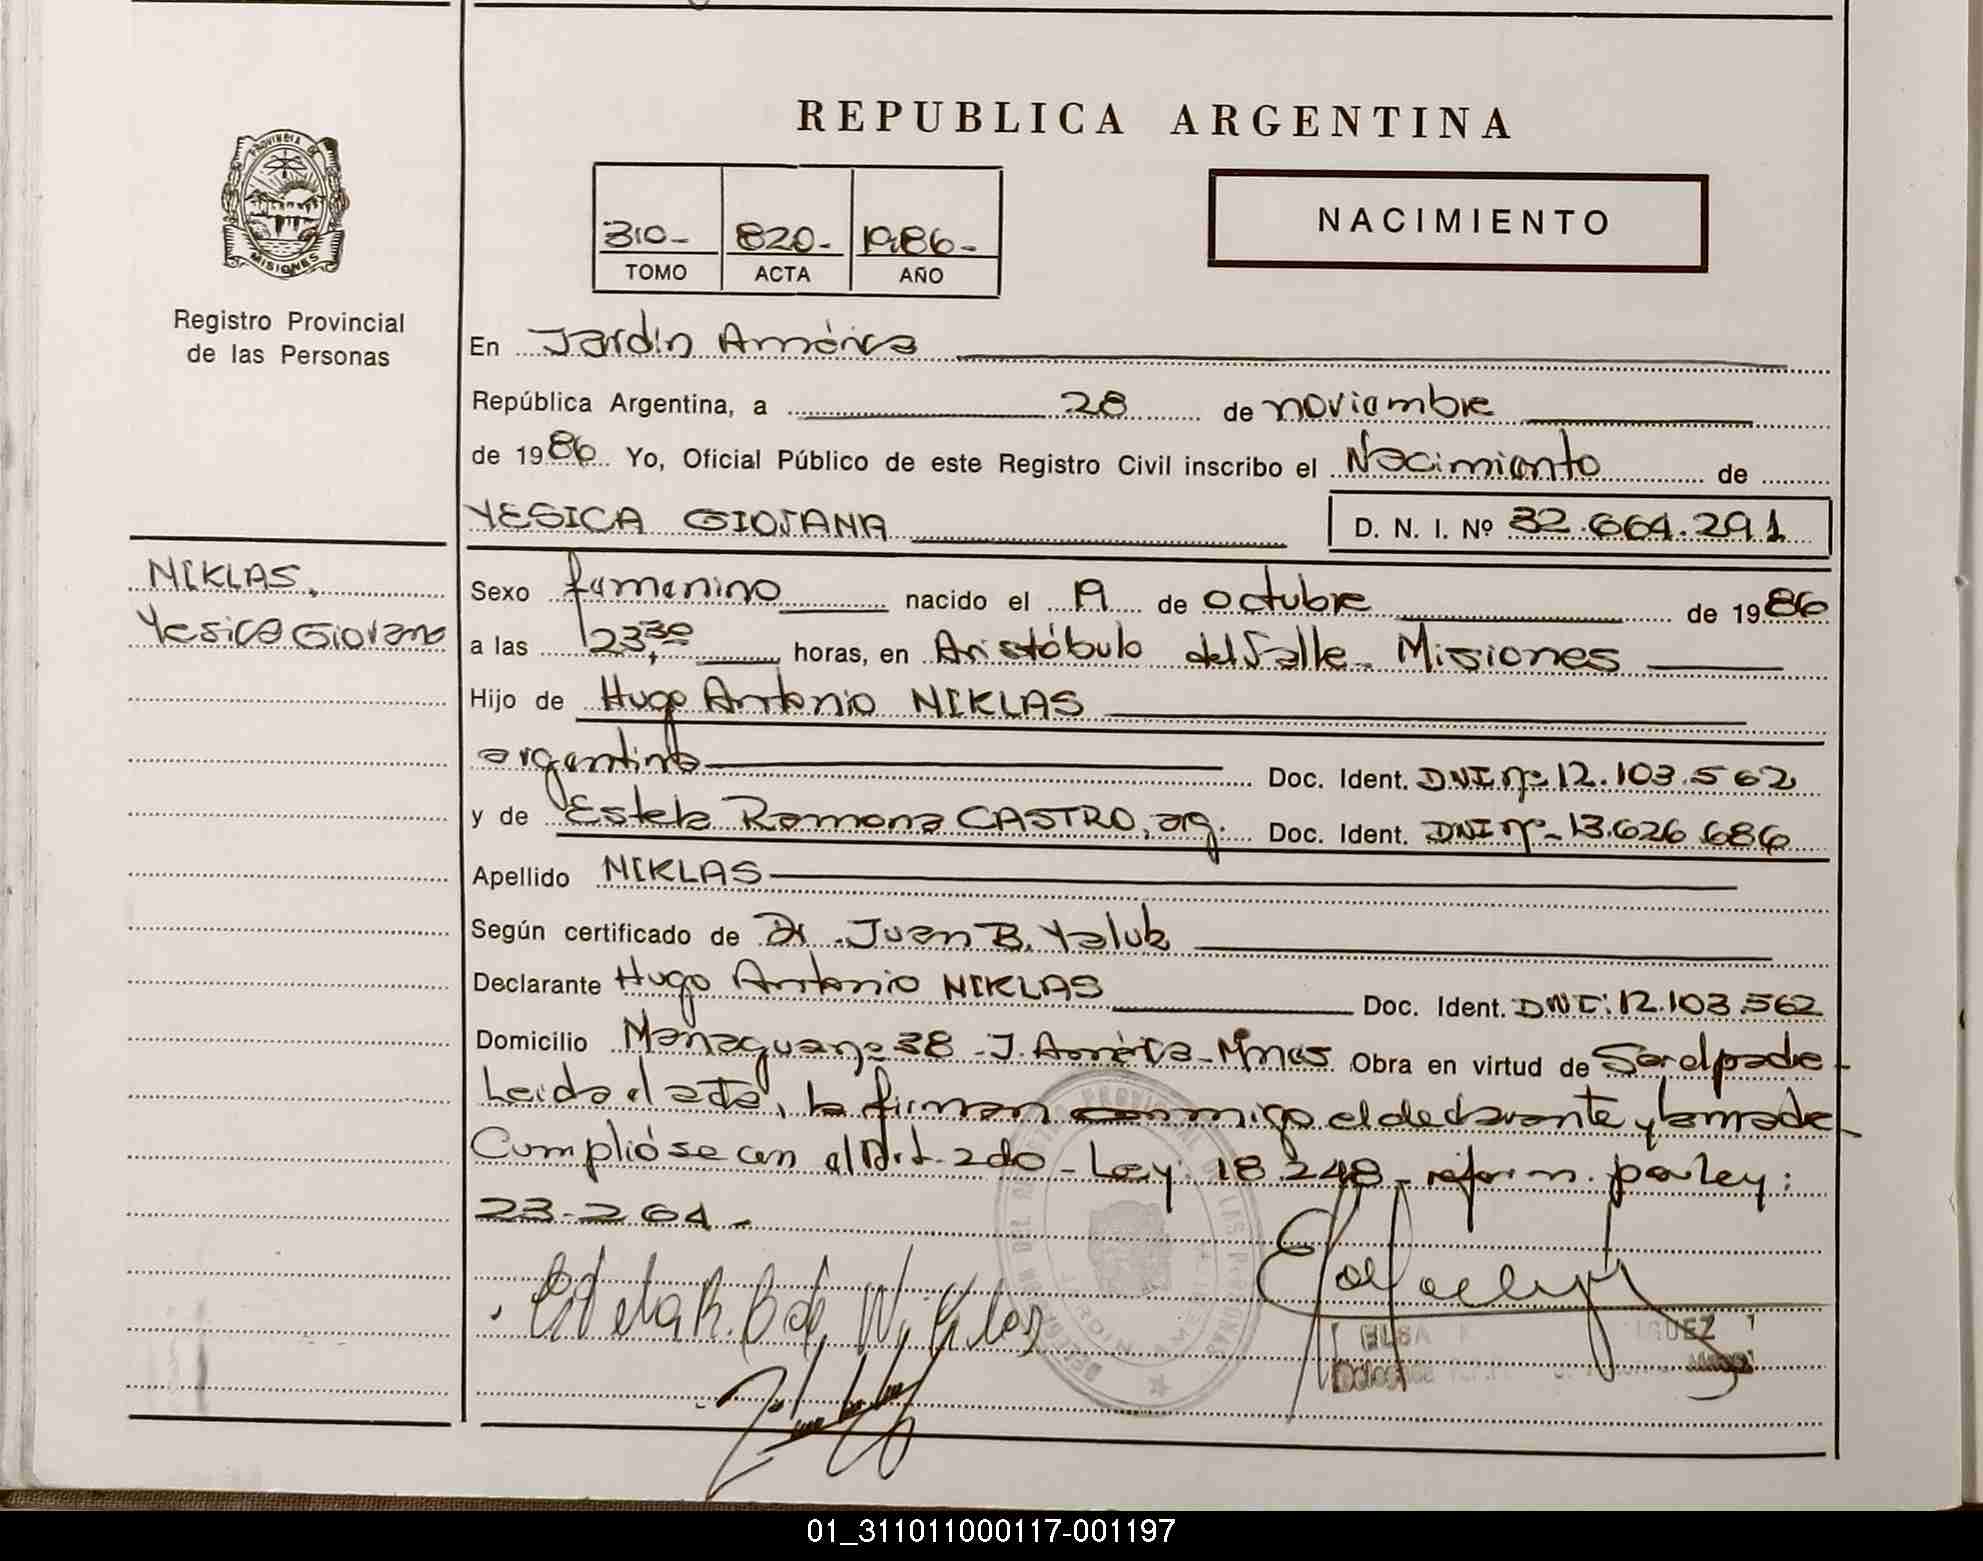 REPUBLICA ARGENTINA
PROVINCIA DE
MISIONES
Registro Provincial
de las Personas
310- 820- 1986-
TOMO ACTA AÑO
NACIMIENTO
En Jardín América
República Argentina, a 28 de noviembre
de 1986 Yo, Oficial Público de este Registro Civil inscribo el Nacimiento de
YESICA GIOVANA D. N. I. Nº 32.664.291
NIKLAS,
Yesica Giovana
Sexo femenino nacido el 19 de octubre de 1986
a las 23,30 horas, en Aristóbulo del Valle - Misiones
Hijo de Hugo Antonio NIKLAS
argentino Doc. Ident. DNI nº 12.103.562
y de Estela Ramona CASTRO, arg. Doc. Ident. DNI nº- 13.626.686
Apellido NIKLAS
Según certificado de Dr. Juan B. Yaluk
Declarante Hugo Antonio NIKLAS Doc. Ident. DNI: 12.103.562
Domicilio Managua nº 38 - J. América - Mnes Obra en virtud de Ser el padre-
Leida el acta, la firman conmigo el declarante y la madre-
Cumplióse con el Art. 2do - Ley: 18.248 - reform. por ley:
23-264-
Estela R. de Niklas
ELSA
01_311011000117-001197